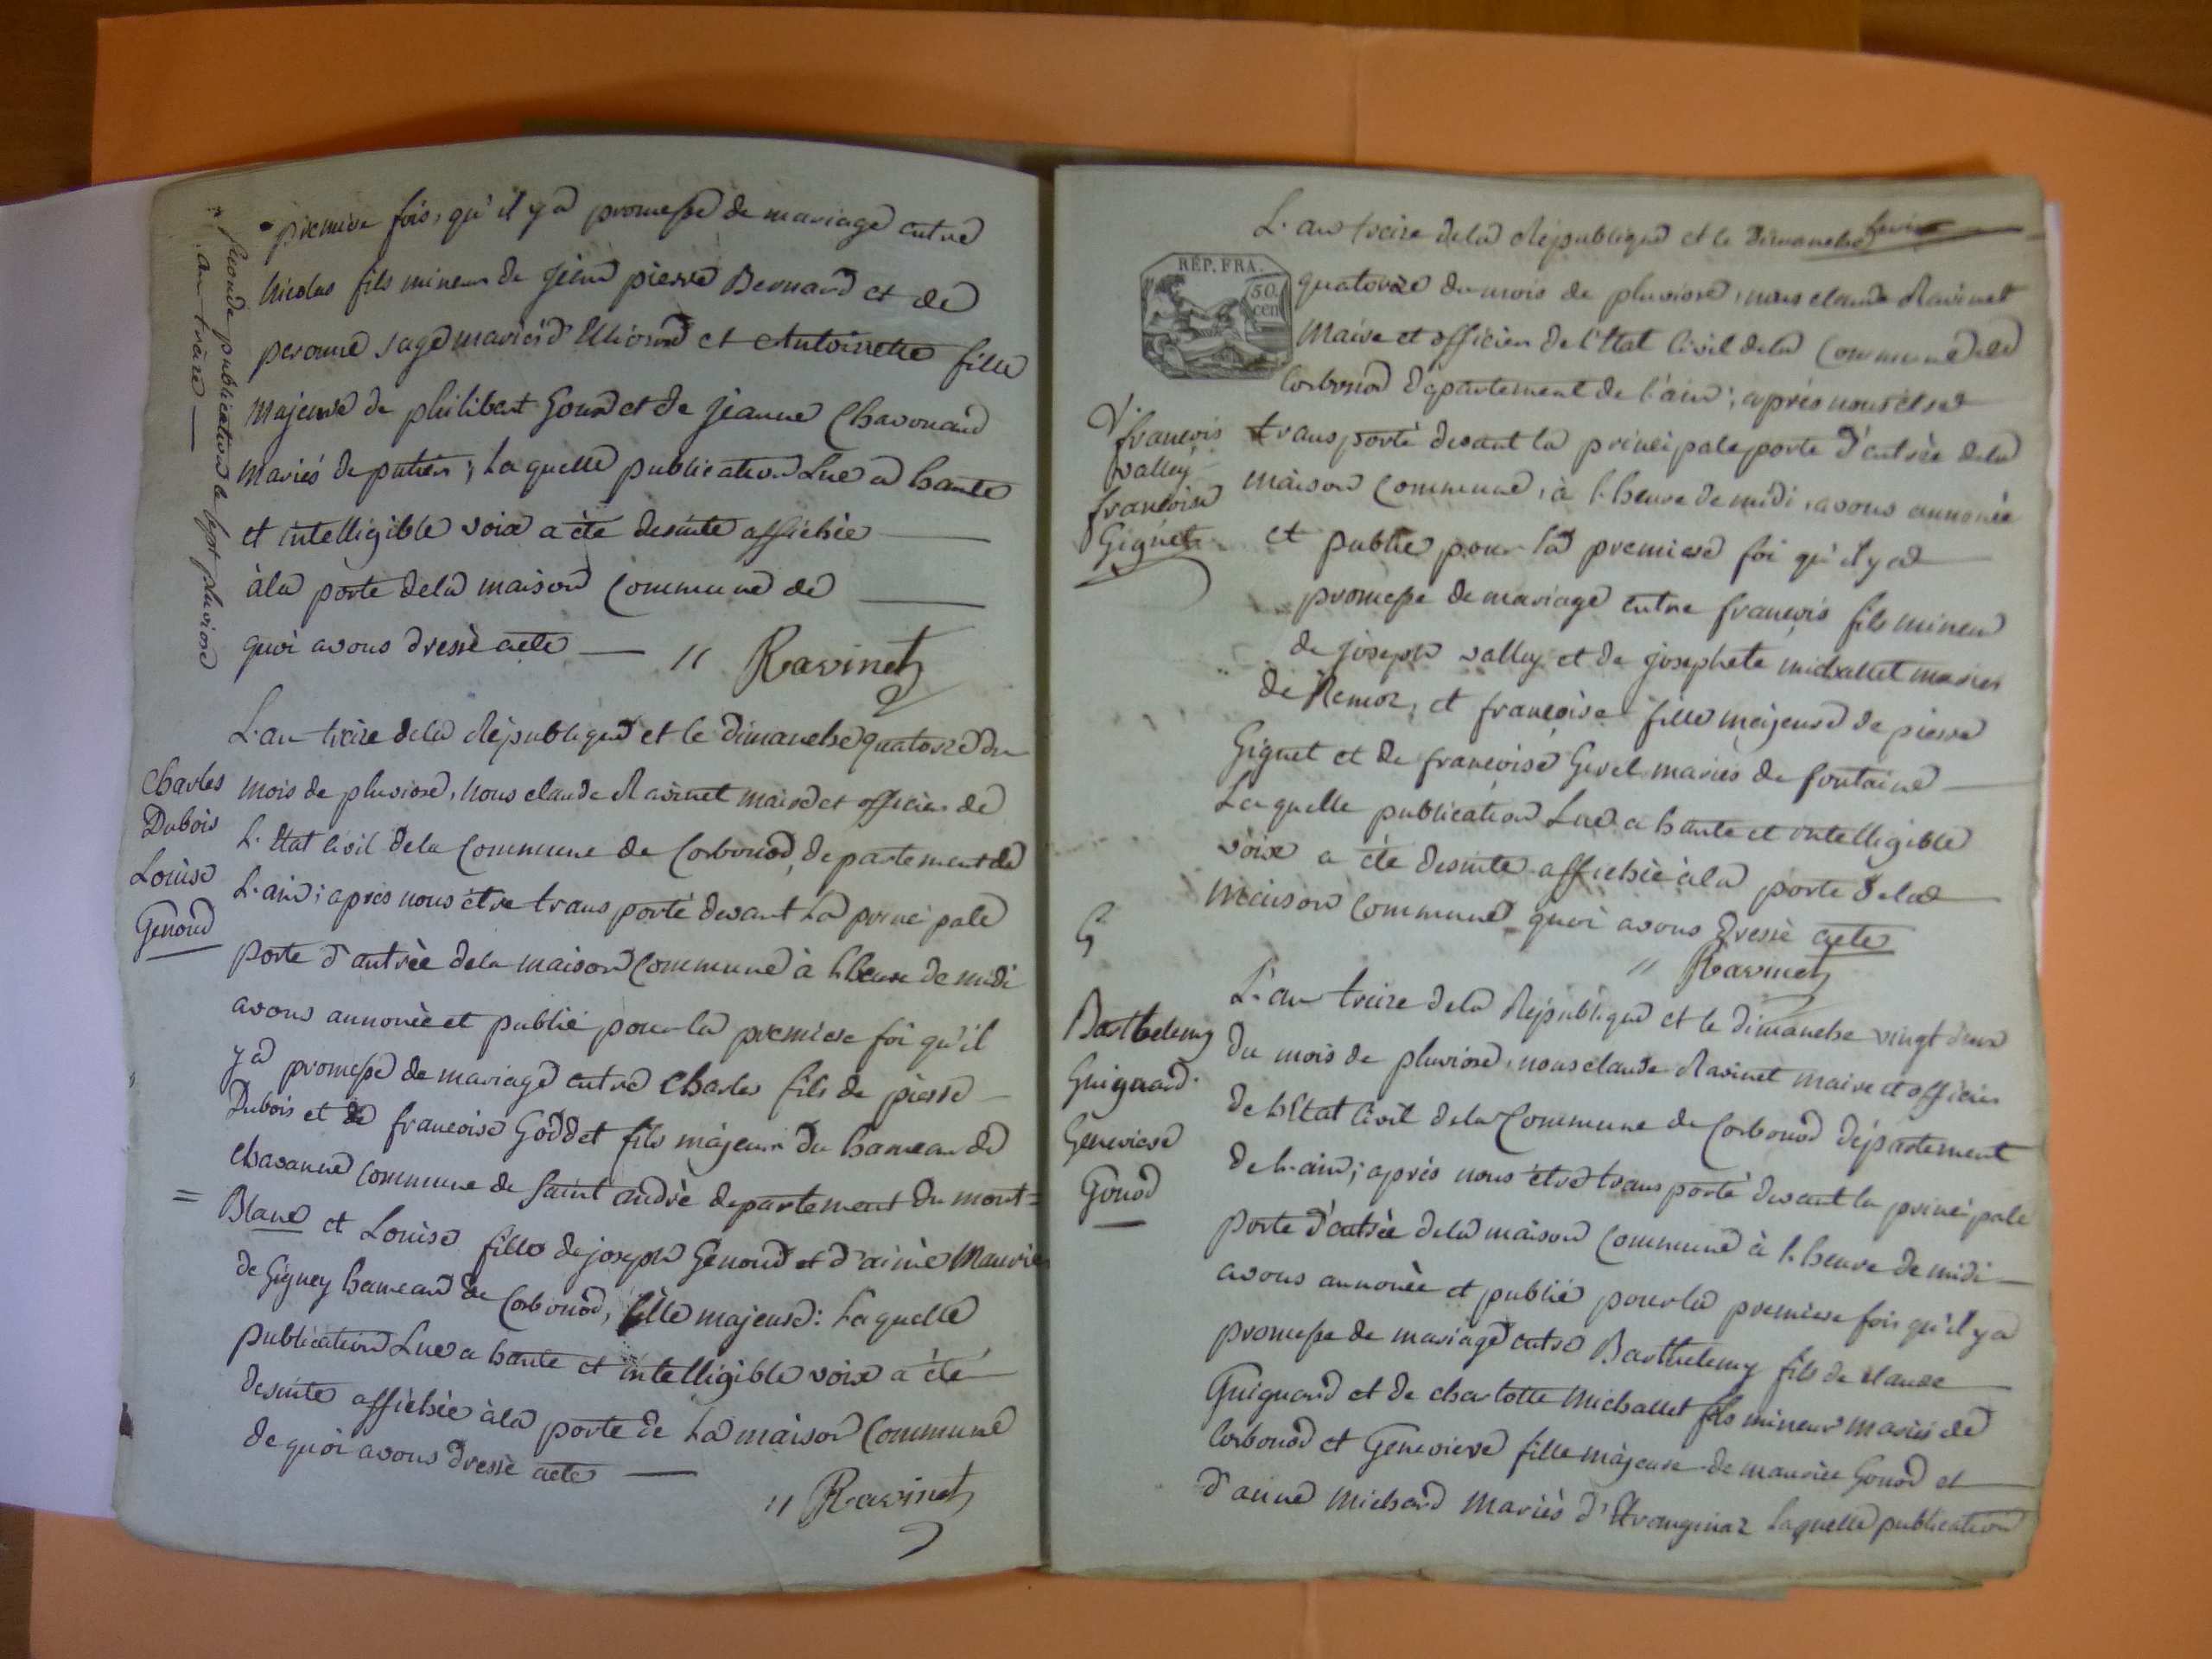 seconde publication le sept pluviose
an treize
premiere fois, qu'il ya promesse de mariage entre
nicolas fils mineur de jean pierre Bernard et de
peronne sage mariés et Antoinette fille
majeure de philibert Gonod et de jeanne Chavonand
mariés de putier; laquelle publication Lue a haute
et intelligible voix a été desuite affichée
àla porte dela maison Commune de
quoi avons dressé acte // Ravinet
L'an treize dela République et le dimanche quatorze du
Charles
Dubois
Louise
Genoud
mois de pluviose, nous claude Ravinet maire et officier de
L'Etat Civil dela Commune de Corbonod, departement de
L'ain; aprés nous être transporté devant La principale
porte d'antrée dela maison Commune à L'heure de midi
avons annoncé et publié pour la premiere foi qu'il
ya promesse de mariage entre Charles fils de pierre
Dubois et de francoise Goddet fils majeur du hameau de
Chavanne Commune de Saint andré departement du mont=
= Blanc et Louise fille de joseph Genoud et d'aimé Maurier
de Gigney hameau de Corbonod, fille majeure: Laquelle
publication Lue a haute et intelligible voix a été
desuite affichée àla porte de La maison Commune
de quoi avons dressé acte
// Ravinet
L'an treize dela République et le dimanche
REP. FRA.
50.
cen
quatorze du mois de pluviose, nous claude Ravinet
Maire et officier de l'Etat Civil dela Commune de
Corbonod département de l'ain; aprés nous etre
françois
valley
françoise
Giguet
transporté devant la principale porte d'entrée dela
maison Commune, à l'heure de midi, avons annoncé
et publié pour la premiere foi qu'il ya
promesse de mariage entre françois fils mineur
de joseph valley et de josephete michallet mariés
de Remoz, et françoise fille majeure de pierre
Giguet et de francoise Gerel mariés de fontaine
Laquelle publication Lue a haute et intelligible
voix a été desuite affichée àla porte dela
maison Commune quoi avons dressé acte
// Ravinet
L'an treize dela République et le dimanche vingt deux
Barthelemy
Guignard
Genevieve
Gonod
du mois de pluviose, nous claude Ravinet maire et officier
de L'Etat Civil dela Commune de Corbonod département
de L'ain; aprés nous être transporté devant la principale
porte d'entrée dela maison Commune à L'heure de midi
avons annoncé et publié pour la premiere fois qu'il ya
promesse de mariage entre Barthelemy fils de claude
Guignard et de charlotte Michallet fils mineur mariés de
Corbonod et Genevieve fille majeure de maurice Gonod et
d'anne Michard mariés d'Etranginaz Laquelle publication